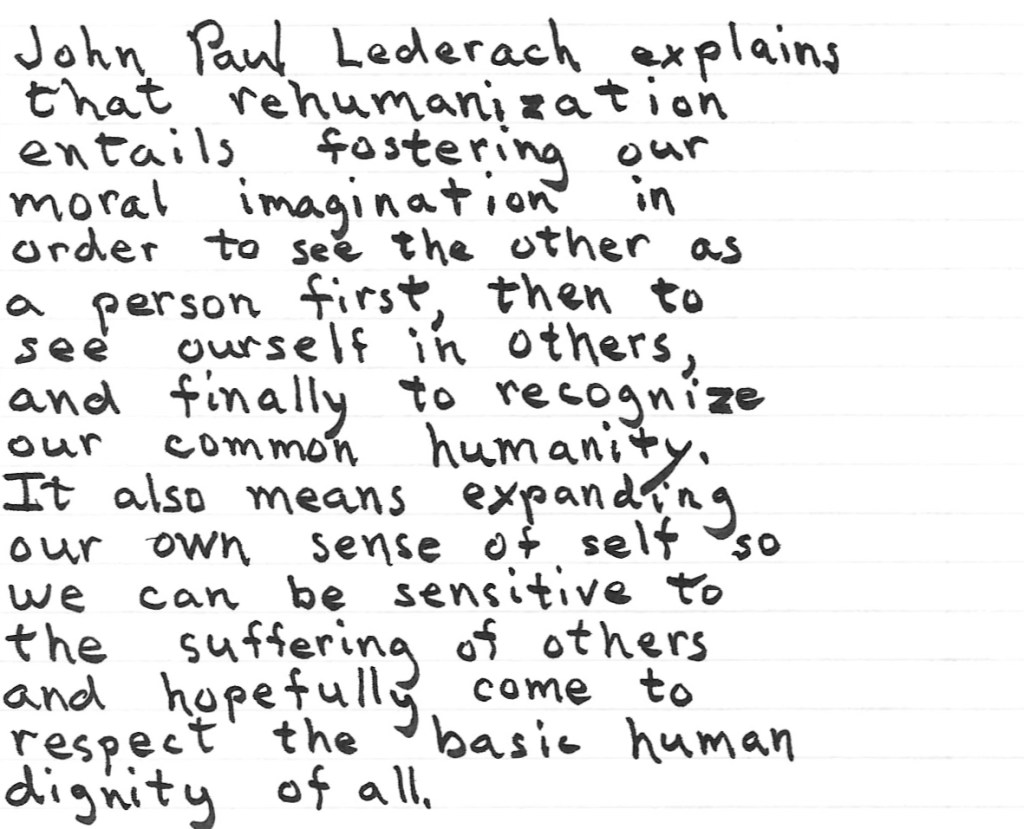 John Paul Lederach explains
that rehumanization
entails fostering our
moral imagination in
order to see the other as
a person first, then to
see ourself in others,
and finally to recognize
our common humanity.
It also means expanding
our own sense of self so
we can be sensitive to
the suffering of others
and hopefully come to
respect the basic human
dignity of all.